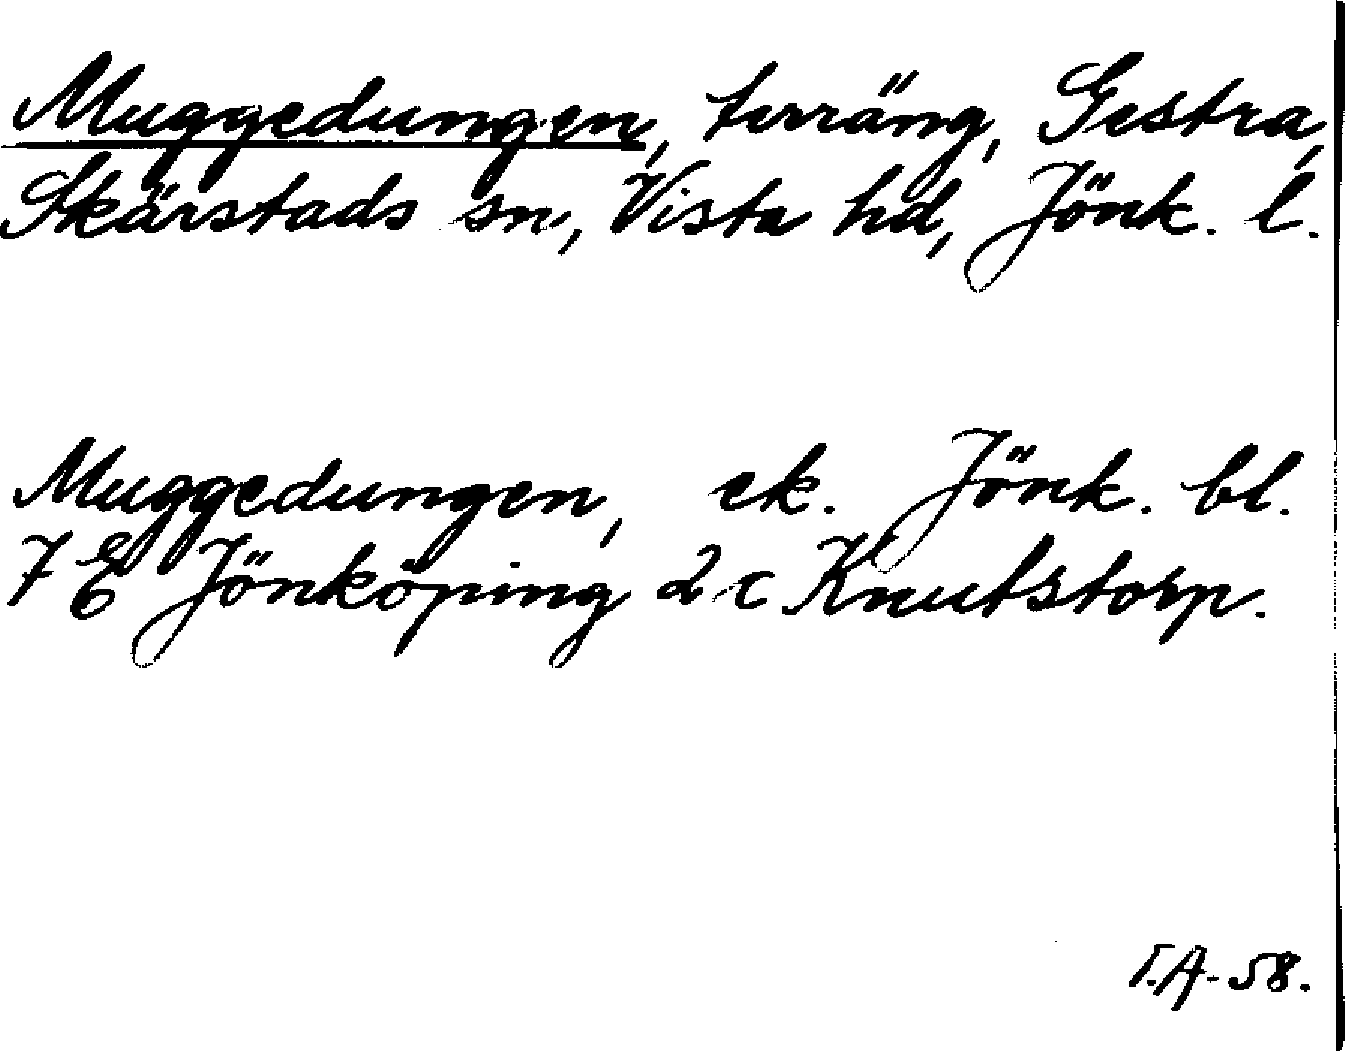 Muggedungen, terräng, Gestra,
Skärstads sn, Vista hd, Jönk. l.
Muggedungen, ek. Jönk. bl.
7 E Jönköping 2 c Knutstorp.
I.A-58.